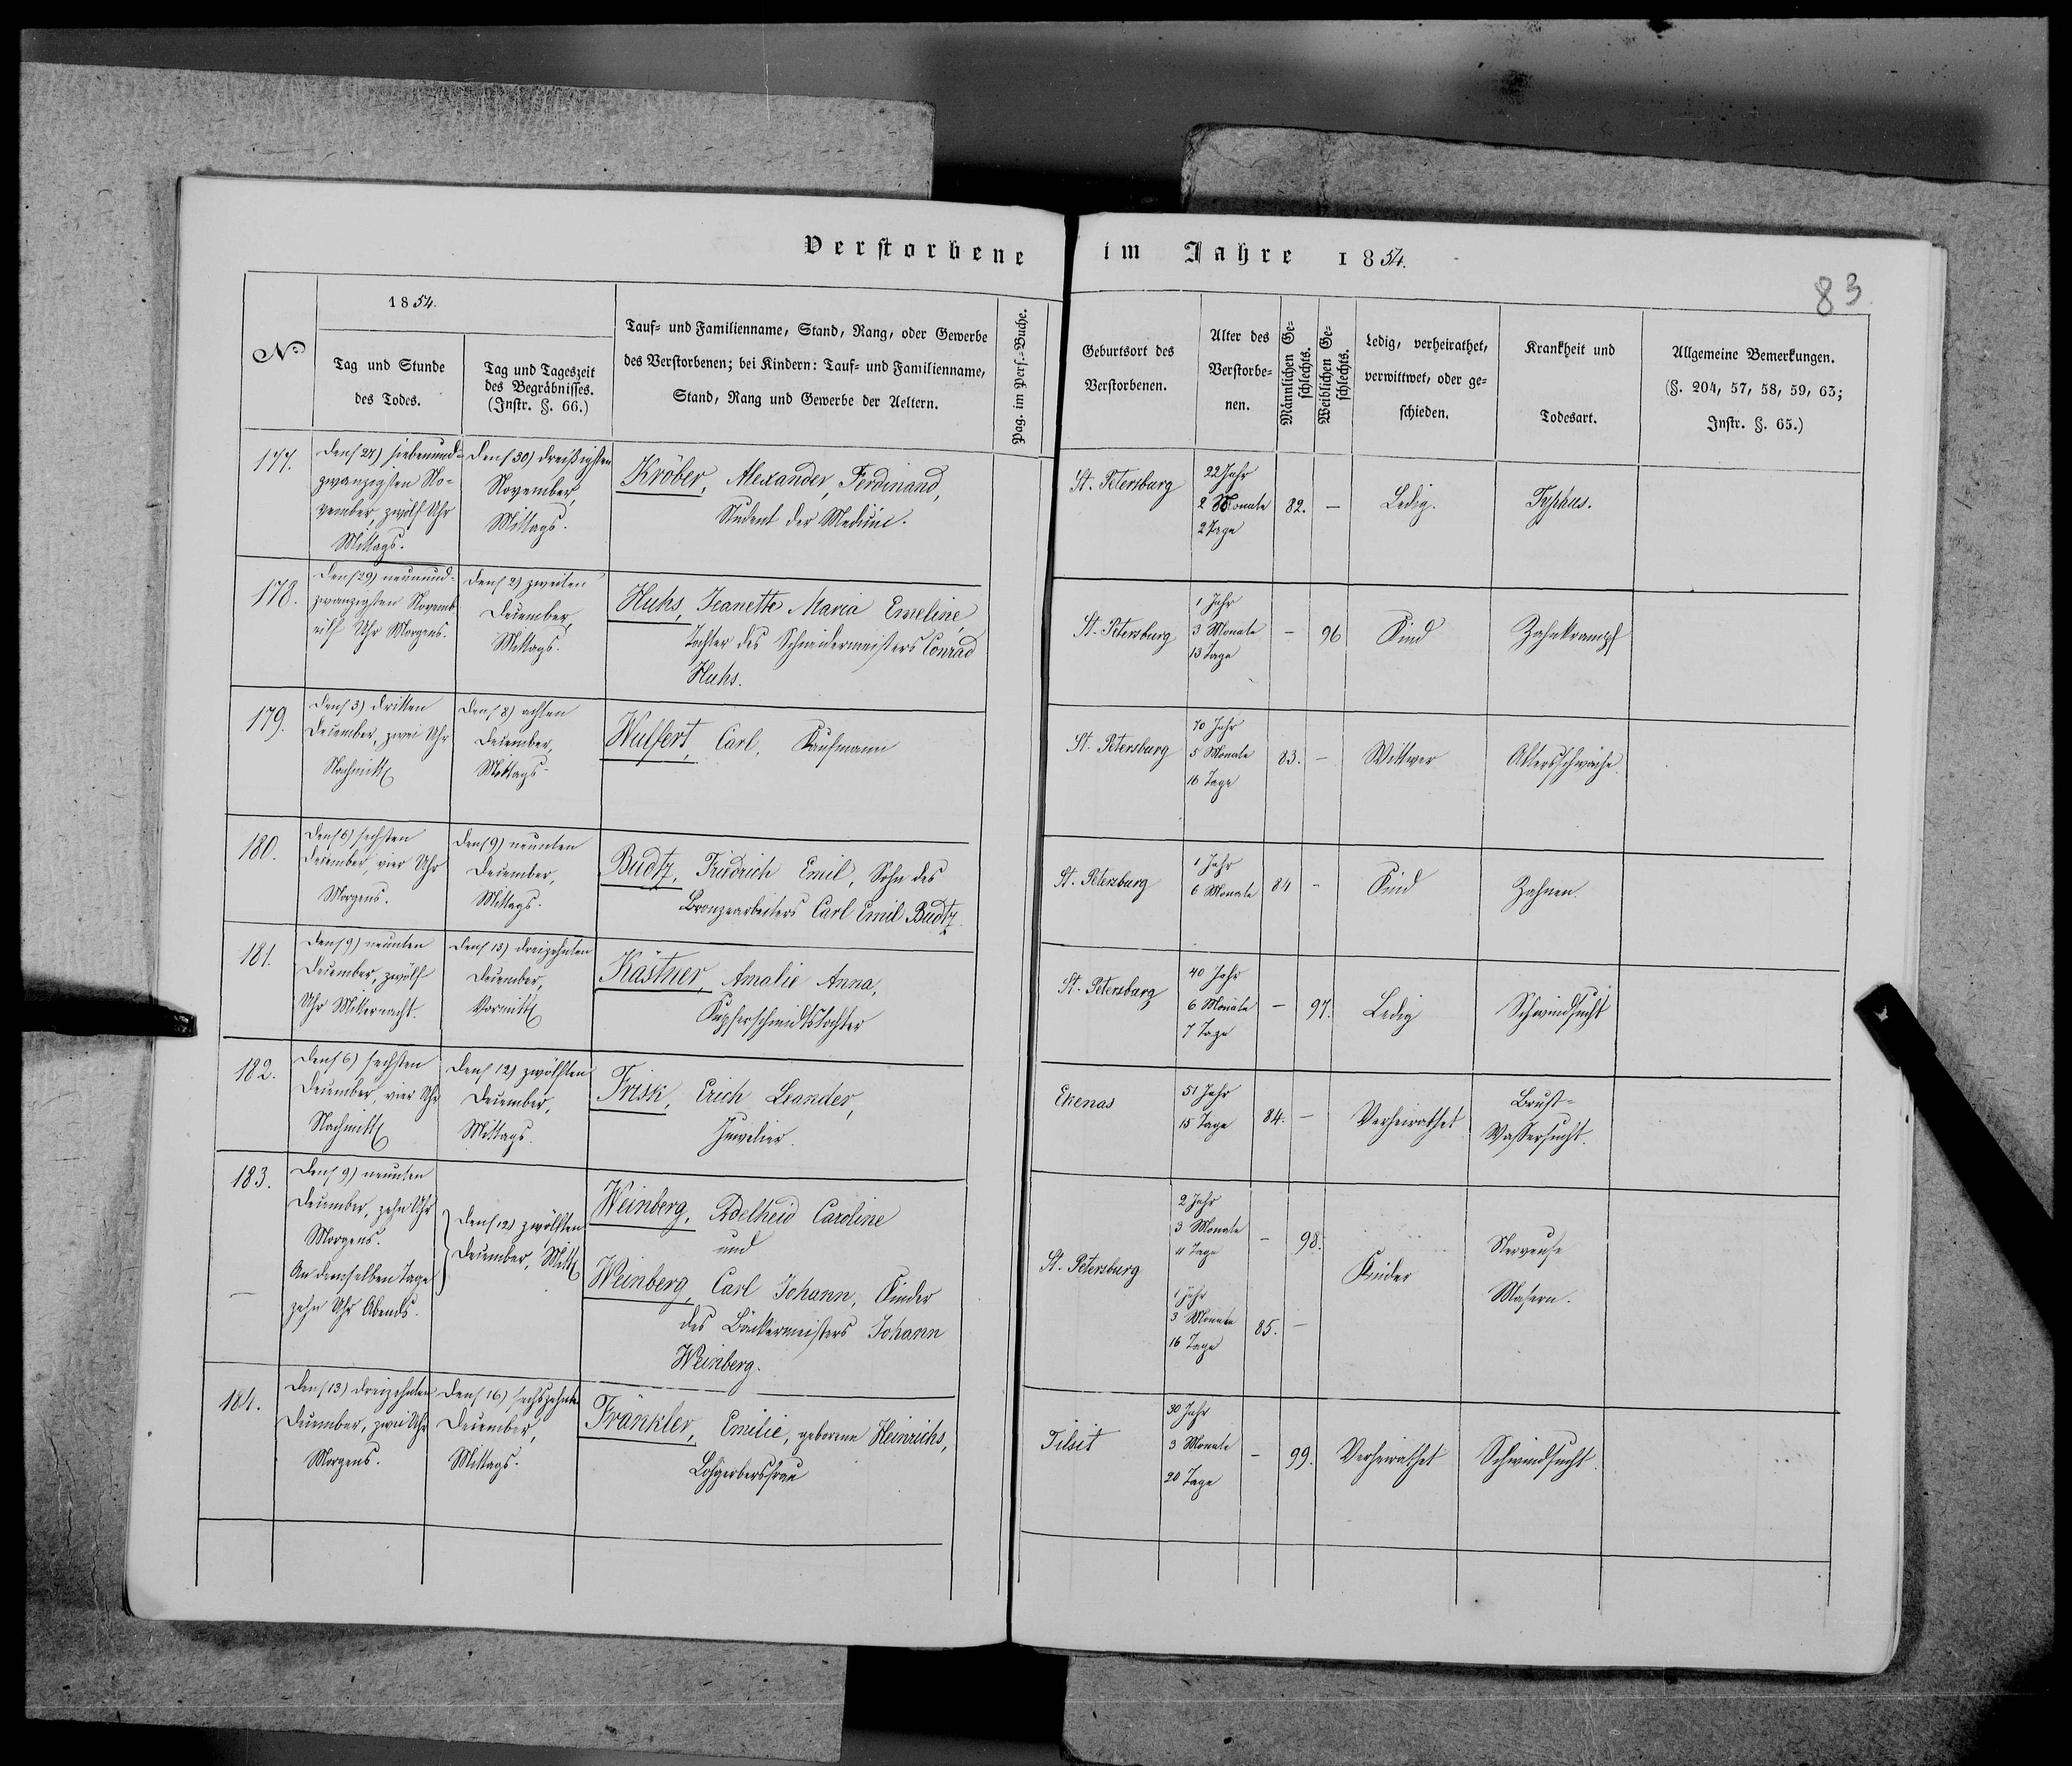 Verstorbene im Jahre 1854.
83
No
1854.
Tag und Stunde
des Todes.
Tag und Tageszeit
des Begräbnisses.
(Instr. §. 66.)
Tauf- und Familienname, Stand, Rang, oder Gewerbe
des Verstorbenen; bei Kindern: Tauf- und Familienname,
Stand, Rang und Gewerbe der Aeltern.
Pag. im Pers.-Buche.
Geburtsort des
Verstorbenen.
Alter des
Verstorbe-
nen.
Männlichen Ge-
schlechts.
Weiblichen Ge-
schlechts.
Ledig, verheirathet,
verwittwet, oder ge-
schieden.
Krankheit und
Todesart.
Allgemeine Bemerkungen.
(§. 204, 57, 58, 59, 63;
Instr. §. 65.)
177.
Den (27) siebenund-
zwanzigsten No-
vember, zwölf Uhr
Mittags.
Den (30) dreißigsten
November,
Mittags.
Kröber, Alexander, Ferdinand,
Student der Medicin.
St. Petersburg
22 Jahr
2 Monate
2 Tage
82.
—
Ledig.
Typhus.
178.
Den (29) neunund-
zwanzigsten Novemb
eilf Uhr Morgens.
Den (2) zweiten
December,
Mittags.
Huhs, Jeanette Maria Emeline,
Tochter des Schneidermeisters Conrad
Huhs.
St. Petersburg
1 Jahr
3 Monate
13 Tage
—
96
Kind
Zahnkrampf
179.
Den (3) dritten
December, zwei Uhr
Nachmitt
Den (8) achten
December,
Mittags-
Wulfert, Carl, Kaufmann
St. Petersburg
70 Jahr
5 Monate
16 Tage
83.
—
Wittwer
Altersschwäche.
180.
Den (6) sechsten
December, vier Uhr
Morgens.
Den (9) neunten
December,
Mittags.
Budtz, Friedrich Emil, Sohn des
Bronzearbeiters Carl Emil Budtz.
St. Petersburg
1 Jahr
6 Monate
84
-
Kind
Zahnen.
181.
Den (9) neunten
December, zwölf
Uhr Mitternacht.
Den (13) dreizehnten
December,
Vormitt
Kästner, Amalie Anna,
Kupferschmidtstochter
St. Petersburg
40 Jahr
6 Monate
7 Tage
—
97.
Ledig
Schwindsucht
182.
Den (6) sechsten
December, vier Uhr
Nachmitt
Den (12) zwölften
December,
Mittags.
Frisk, Erich Leander,
Juwelier.
Ekenas
51 Jahr
15 Tage
84.
—
Verheirathet
Brust-
Wassersucht.
183.
Den (9) neunten
December, zehn Uhr
Morgens.
An demselben Tage
zehn Uhr Abends.
—
Den (12) zwölften
December, Mitt
Weinberg, Adelheid Caroline
und
Weinberg, Carl Johann, Kinder
des Bäckermeisters Johann
Weinberg.
St. Petersburg
2 Jahr
3 Monate
11 Tage
—
98.
1 Jahr
3 Monate
16 Tage
85.
—
Kinder
Nervense
Masern.
184.
Den (13) dreizehnten
December, zwei Uhr
Morgens.
Den (16) sechszehnten
December,
Mittags.
Fränkler, Emilie, geborene Heinrichs,
Lohgerbersfrau
Tilsit
30 Jahr
3 Monate
20 Tage
-
99.
Verheirathet
Schwindsucht.